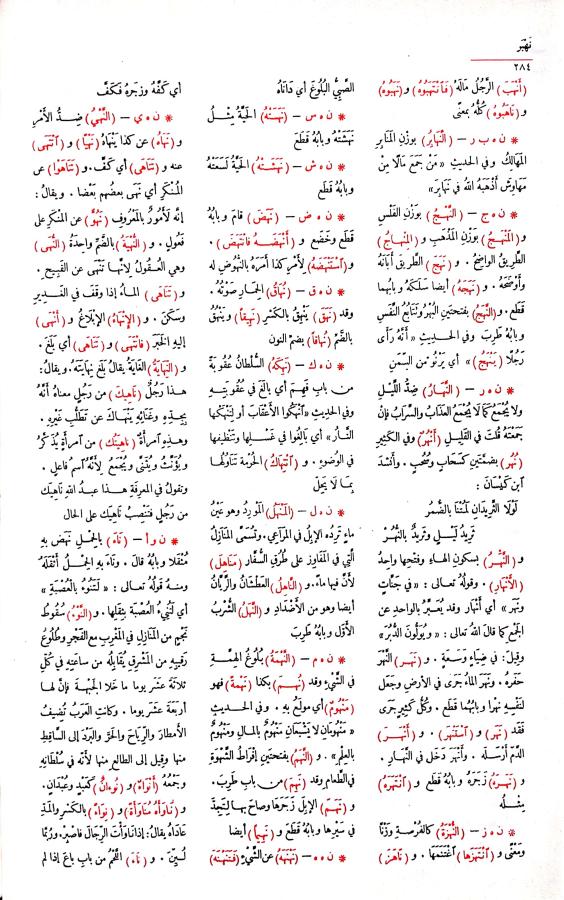 نهبر
٢٨٤
(أَنْهَبَ) الرَّجُلُ مَالَهُ (فَانْتَهَبُوهُ) و(نَهَبُوهُ)
و(نَاهَبُوهُ) كُلُّهُ بمعنًى
* ن ه ب ر – (النَّهَابِرُ) بوزنِ المَنَابِرِ
المَهَالِكُ وفي الحديثِ «مَنْ جَمَعَ مَالًا مِنْ
مَهَاوِشَ أَذْهَبَهُ اللهُ في نَهَابِرَ»
* ن ه ج – (النَّهْجُ) بوزن الفَلْسِ
و(المَنْهَجُ) بوَزْنِ المَذْهَبِ و(المِنْهَاجُ)
الطَّرِيقُ الوَاضِحُ . و(نَهَجَ) الطَّرِيقَ أَبَانَهُ
وأَوْضَحَهُ . و(نَهَجَهُ) أيضا سَلَكَهُ وبابُهما
قَطَعَ . و(النَّهَجُ) بفتحتين البُهْرُ وتَتَابُعُ النَّفَسِ
وبابُهُ طَرِبَ وفي الحديثِ «أَنَّهُ رَأَى
رَجُلًا (يَنْهَجُ)» أي يَرْبُو مِنَ السِّمَنِ
* ن ه ر – (النَّهَارُ) ضِدُّ اللَّيْلِ
ولا يُجْمَعُ كما لا يُجْمَعُ العَذَابُ والسَّرَابُ فإنْ
جَمَعْتَهُ قُلْتَ في القَليلِ (أَنْهُرٌ) وفي الكثيرِ
(نُهُرٌ) بضمَّتين كسَحَابٍ وسُحُبٍ . وأنشد
ابن كَيْسَانَ :
لَوْلَا الثَّرِيدَانِ لَمُتْنَا بالضُّمُرْ
ثَرِيدُ لَيْلٍ وثَرِيدٌ بالنُّهُرْ
و(النَّهْرُ) بسكونِ الهاءِ وفتحِها واحدُ
(الأَنْهَارِ) . وقولُهُ تعالى : «في جَنَّاتٍ
ونَهَرٍ» أي أَنْهَارٍ وقد يُعَبَّرُ بالواحدِ عن
الجَمْعِ كما قالَ اللهُ تعالى : «ويُوَلُّونَ الدُّبُرَ»
وقِيلَ : في ضِيَاءٍ وَسَعَةٍ . و(نَهَرَ) النَّهْرَ
حَفَرَهُ . ونَهَرَ الماءُ جَرَى في الأرضِ وجعلَ
لنَفْسِهِ نَهْرًا وبابُهما قَطَعَ . وكُلُّ كثيرٍ جَرَى
فقَدْ (نَهَرَ) و(اسْتَنْهَرَ) . و(أَنْهَرَ)
الدَّمَ أَرْسَلَهُ . وأَنْهَرَ دَخَلَ في النَّهَارِ .
و(نَهَرَهُ) زَجَرَهُ وبابُهُ قَطَعَ و(انْتَهَرَهُ)
مِثْلُهُ
* ن ه ز – (النُّهْزَةُ) كالفُرْصةِ وَزْنًا
ومَعْنًى و(انْتَهَزَها) اغْتَنَمَها . و(نَاهَزَ)
الصَّبِيُّ البُلُوغَ أي دَانَاهُ
* ن ه س – (نَهَسَتْهُ) الحَيَّةُ مِثْلُ
نَهَشَتْهُ وبابُهُ قَطَعَ
* ن ه ش – (نَهَشَتْهُ) الحَيَّةُ لَسَعَتْهُ
وبابُهُ قَطَعَ
* ن ه ض – (نَهَضَ) قامَ وبابُهُ
قَطَعَ وخَضَعَ و(أَنْهَضَهُ فانْتَهَضَ) .
و(اسْتَنْهَضَهُ) لأَمْرِ كذا أَمَرَهُ بالنُّهُوضِ له
* ن ه ق – (نُهَاقُ) الحِمَارِ صَوْتُهُ .
وقد (نَهَقَ) يَنْهِقُ بالكَسْرِ (نَهِيقًا) ويَنْهُقُ
بالضَّمِّ (نُهَاقًا) بضم النون
* ن ه ك – (نَهِكَهُ) السُّلْطانُ عُقُوبَةً
من بابِ فَهِمَ أي بالَغَ في عُقُوبَتِهِ
وفي الحديثِ «انْهَكُوا الأَعْقَابَ أو لَتَنْهَكَنَّها
النَّارُ» أي بالِغُوا في غَسْلِها وتَنْظِيفِها
في الوُضوءِ . و(انْتِهَاكُ) الحُرْمةِ تَنَاوُلُها
بمَا لا يَحِلُّ
* ن ه ل – (المَنْهَلُ) المَوْرِدُ وهو عَيْنُ
ماءٍ تَرِدُهُ الإِبِلُ في المَرَاعِي . وتُسَمَّى المَنَازِلُ
الَّتي في المَفَاوِزِ على طُرُقِ السُّفَّارِ (مَنَاهِلَ)
لأَنَّ فيها مَاءً . و(النَّاهِلُ) العَطْشَانُ والرَّيَّانُ
أيضا وهو من الأَضْدَادِ و(النَّهَلُ) الشُّرْبُ
الأَوَّلُ وبابُهُ طَرِبَ
* ن ه م – (النَّهْمَةُ) بُلُوغُ الهِمَّةِ
في الشَّيْءِ وقد (نُهِمَ) بكذا (نَهْمَةً) فهو
(مَنْهُومٌ) أي مُولَعٌ بِهِ . وفي الحديثِ
«مَنْهُومَانِ لا يَشْبَعَانِ مَنْهُومٌ بالمالِ ومَنْهُومٌ
بالعِلْمِ» . و(النَّهَمُ) بفتحتين إفْرَاطُ الشَّهْوَةِ
في الطَّعامِ وقد (نَهِمَ) من بابِ طَرِبَ .
و(نَهَمَ) الإِبِلَ زَجَرَها وصاحَ بها لِتَجِدَّ
في سَيْرِها وبابُهُ قَطَعَ و(نَهِيمًا) أيضا
* ن ه ه – (نَهْنَهَهُ) عن الشَّيْءِ (فتَنَهْنَهَ)
أي كَفَّهُ وزجَرهُ فكَفَّ
* ن ه ي – (النَّهْيُ) ضِدُّ الأَمْرِ
و(نَهَاهُ) عن كذا يَنْهَاهُ (نَهْيًا) و(انْتَهَى)
عنه و(تَنَاهَى) أي كَفَّ . و(تَنَاهَوْا) عن
المُنْكَرِ أي نَهَى بعضُهم بعضًا . ويقالُ :
إنَّه لَأَمُورٌ بالمَعْرُوفِ (نَهُوٌّ) عن المُنْكَرِ على
فَعُولٍ . و(النُّهْيَةُ) بالضَّمِّ واحدةُ (النُّهَى)
وهي العُقُولُ لأنَّها تَنْهَى عن القَبِيحِ .
و(تَنَاهَى) الماءُ إذا وقَفَ في الغَدِيرِ
وسَكَنَ . و(الإِنْهَاءُ) الإِبْلَاغُ و(أَنْهَى)
إليه الخَبَرَ (فانْتَهَى) و(تَنَاهَى) أي بَلَغَ .
و(النِّهَايَةُ) الغَايَةُ يقالُ بلَغَ نِهَايَتَهُ . ويقالُ :
هذا رَجُلٌ (نَاهِيكَ) من رَجُلٍ معناهُ أَنَّهُ
بِجِدِّهِ وغَنَائِهِ يَنْهَاكَ عن تَطَلُّبِ غَيْرِهِ .
وهذه امرأةٌ (نَاهِيَتُكَ) من امرأةٍ يُذَكَّرُ
ويُؤَنَّثُ ويُثَنَّى ويُجْمَعُ لأنَّهُ اسمُ فاعلٍ .
وتقولُ في المعرفَةِ هذا عبدُ اللهِ نَاهِيَكَ
من رَجُلٍ فتَنْصِبُ نَاهِيَكَ على الحالِ
* ن و أ – (نَاءَ) بالحِمْلِ نَهَضَ بِهِ
مُثْقَلًا وبابُهُ قالَ . ونَاءَ بِهِ الحِمْلُ أَثْقَلَهُ
ومنهُ قولُهُ تعالى : «لَتَنُوءُ بالعُصْبَةِ»
أي لَتُنِيءُ العُصْبةَ بثِقَلِها . و(النَّوْءُ) سُقُوطُ
نَجْمٍ من المَنَازِلِ في المَغْرِبِ مع الفَجْرِ وطُلُوعُ
رَقِيبِهِ من المَشْرِقِ يُقَابِلُهُ من سَاعتِهِ في كُلِّ
ثلاثَةَ عَشَرَ يوما ما خلا الجَبْهةَ فإنَّ لها
أربعَةَ عشَرَ يوما . وكانتِ العَرَبُ تُضِيفُ
الأمطارَ والرِّياحَ والحَرَّ والبَرْدَ إلى السَّاقِطِ
منها وقيل إلى الطالعِ منها لأنَّه في سُلْطانِهِ
وجَمْعُهُ (أَنْوَاءٌ) و(نُوآنٌ) كعَبْدٍ وعُبْدَانٍ .
و(نَاوَأَهُ مُنَاوَأَةً) و(نِوَاءً) بالكَسْرِ والمَدِّ
عَادَاهُ يقالُ : إذا نَاوَأْتَ الرِّجَالَ فاصْبِرْ . ورُبَّما
لُيِّنَ . و(نَاءَ) اللَّحْمُ من بابِ باعَ إذا لم